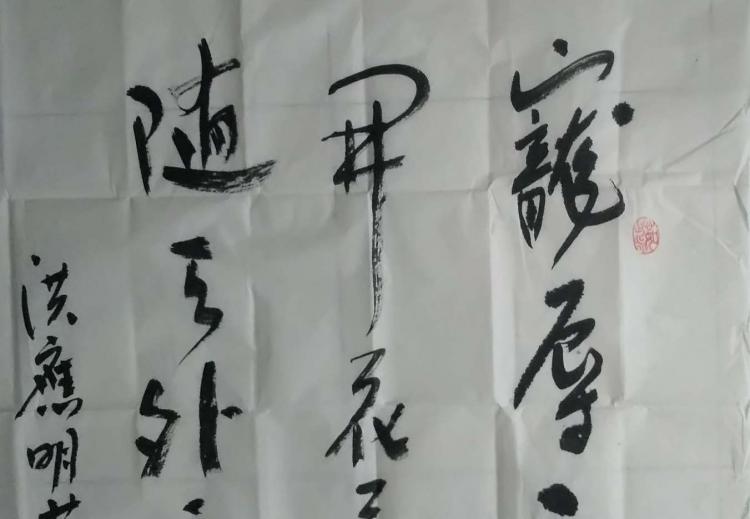 寵辱
開花
随天外
洪應明